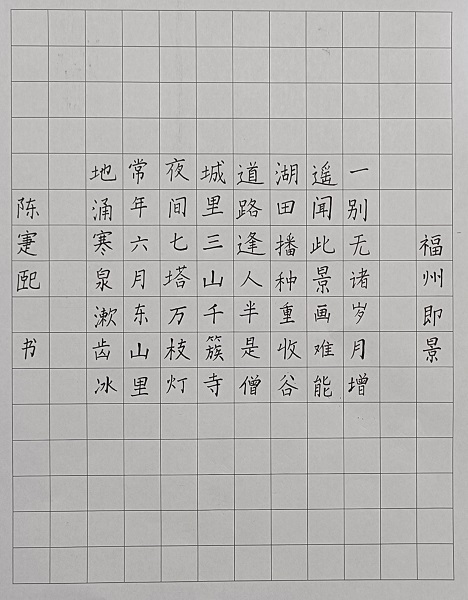 福州即景
一别无诸岁月增
遥闻此景画难能
湖田播种重收谷
道路逢人半是僧
城里三山千簇寺
夜间七塔万枝灯
常年六月东山里
地涌寒泉漱齿冰
陈 熙 书